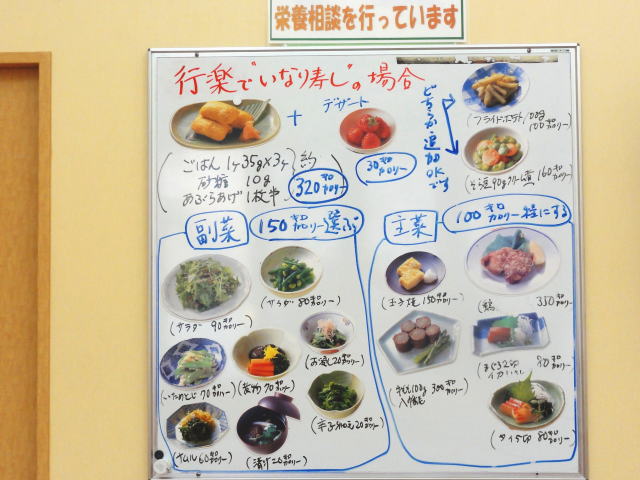 栄養相談を行っています
行楽でいなり寿しの場合
+
デザート
どちらか追加OKです
(フライドポテト100g
100キロカロリー)
90gクリーム煮160キロカロリー)
ごはん 1ケ35g×3ケ
砂糖 10g
あぶらあげ 1枚半
約
320キロカロリー
30キロカロリー
副菜
150キロカロリー選ぶ
(サラダ 90キロカロリー)
(サラダ 80キロカロリー)
いためとじ 70キロカロリー)
(煮物 70キロカロリー)
(お浸し20キロカロリー)
(ナムル 60キロカロリー)
(清汁20キロカロリー)
(辛子和え20キロカロリー)
主菜
100キロカロリー程にする
(玉子焼 150キロカロリー)
(鶏 350キロカロリー
100g 300キロカロリー)
80キロカロリー
(タイ5切 80キロカロリー)